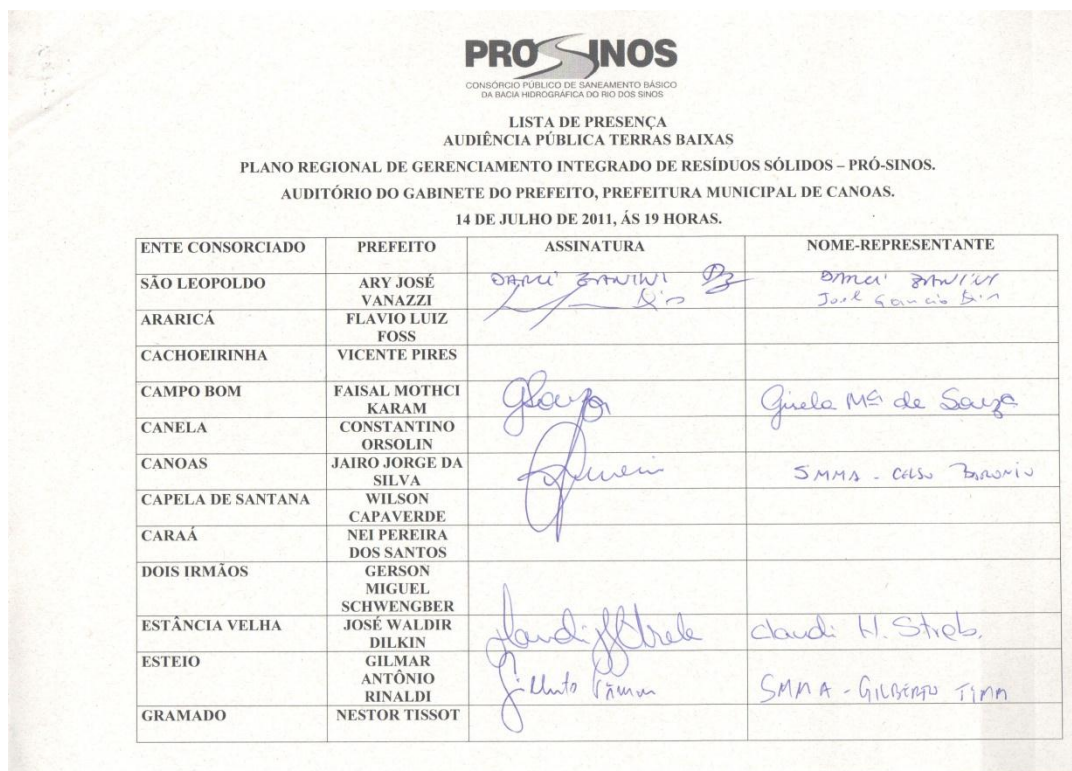 PRÓSINOS
CONSÓRCIO PÚBLICO DE SANEAMENTO BÁSICO
DA BACIA HIDROGRÁFICA DO RIO DOS SINOS
LISTA DE PRESENÇA
AUDIÊNCIA PÚBLICA TERRAS BAIXAS
PLANO REGIONAL DE GERENCIAMENTO INTEGRADO DE RESÍDUOS SÓLIDOS – PRÓ-SINOS.
AUDITÓRIO DO GABINETE DO PREFEITO, PREFEITURA MUNICIPAL DE CANOAS.
14 DE JULHO DE 2011, ÁS 19 HORAS.
ENTE CONSORCIADO PREFEITO ASSINATURA NOME-REPRESENTANTE
SÃO LEOPOLDO ARY JOSÉ DARCI ZANINI DARCI ZANINI
VANAZZI José
ARARICÁ FLAVIO LUIZ
FOSS
CACHOEIRINHA VICENTE PIRES
CAMPO BOM FAISAL MOTHCI Gisela Mª de Souza
KARAM
CANELA CONSTANTINO
ORSOLIN
CANOAS JAIRO JORGE DA SMMA - CELSO BARONIO
SILVA
CAPELA DE SANTANA WILSON
CAPAVERDE
CARAÁ NEI PEREIRA
DOS SANTOS
DOIS IRMÃOS GERSON
MIGUEL
SCHWENGBER
ESTÂNCIA VELHA JOSÉ WALDIR Claudi H. Streb.
DILKIN
ESTEIO GILMAR
ANTÔNIO
RINALDI SMMA - GILBERTO TIMM
GRAMADO NESTOR TISSOT